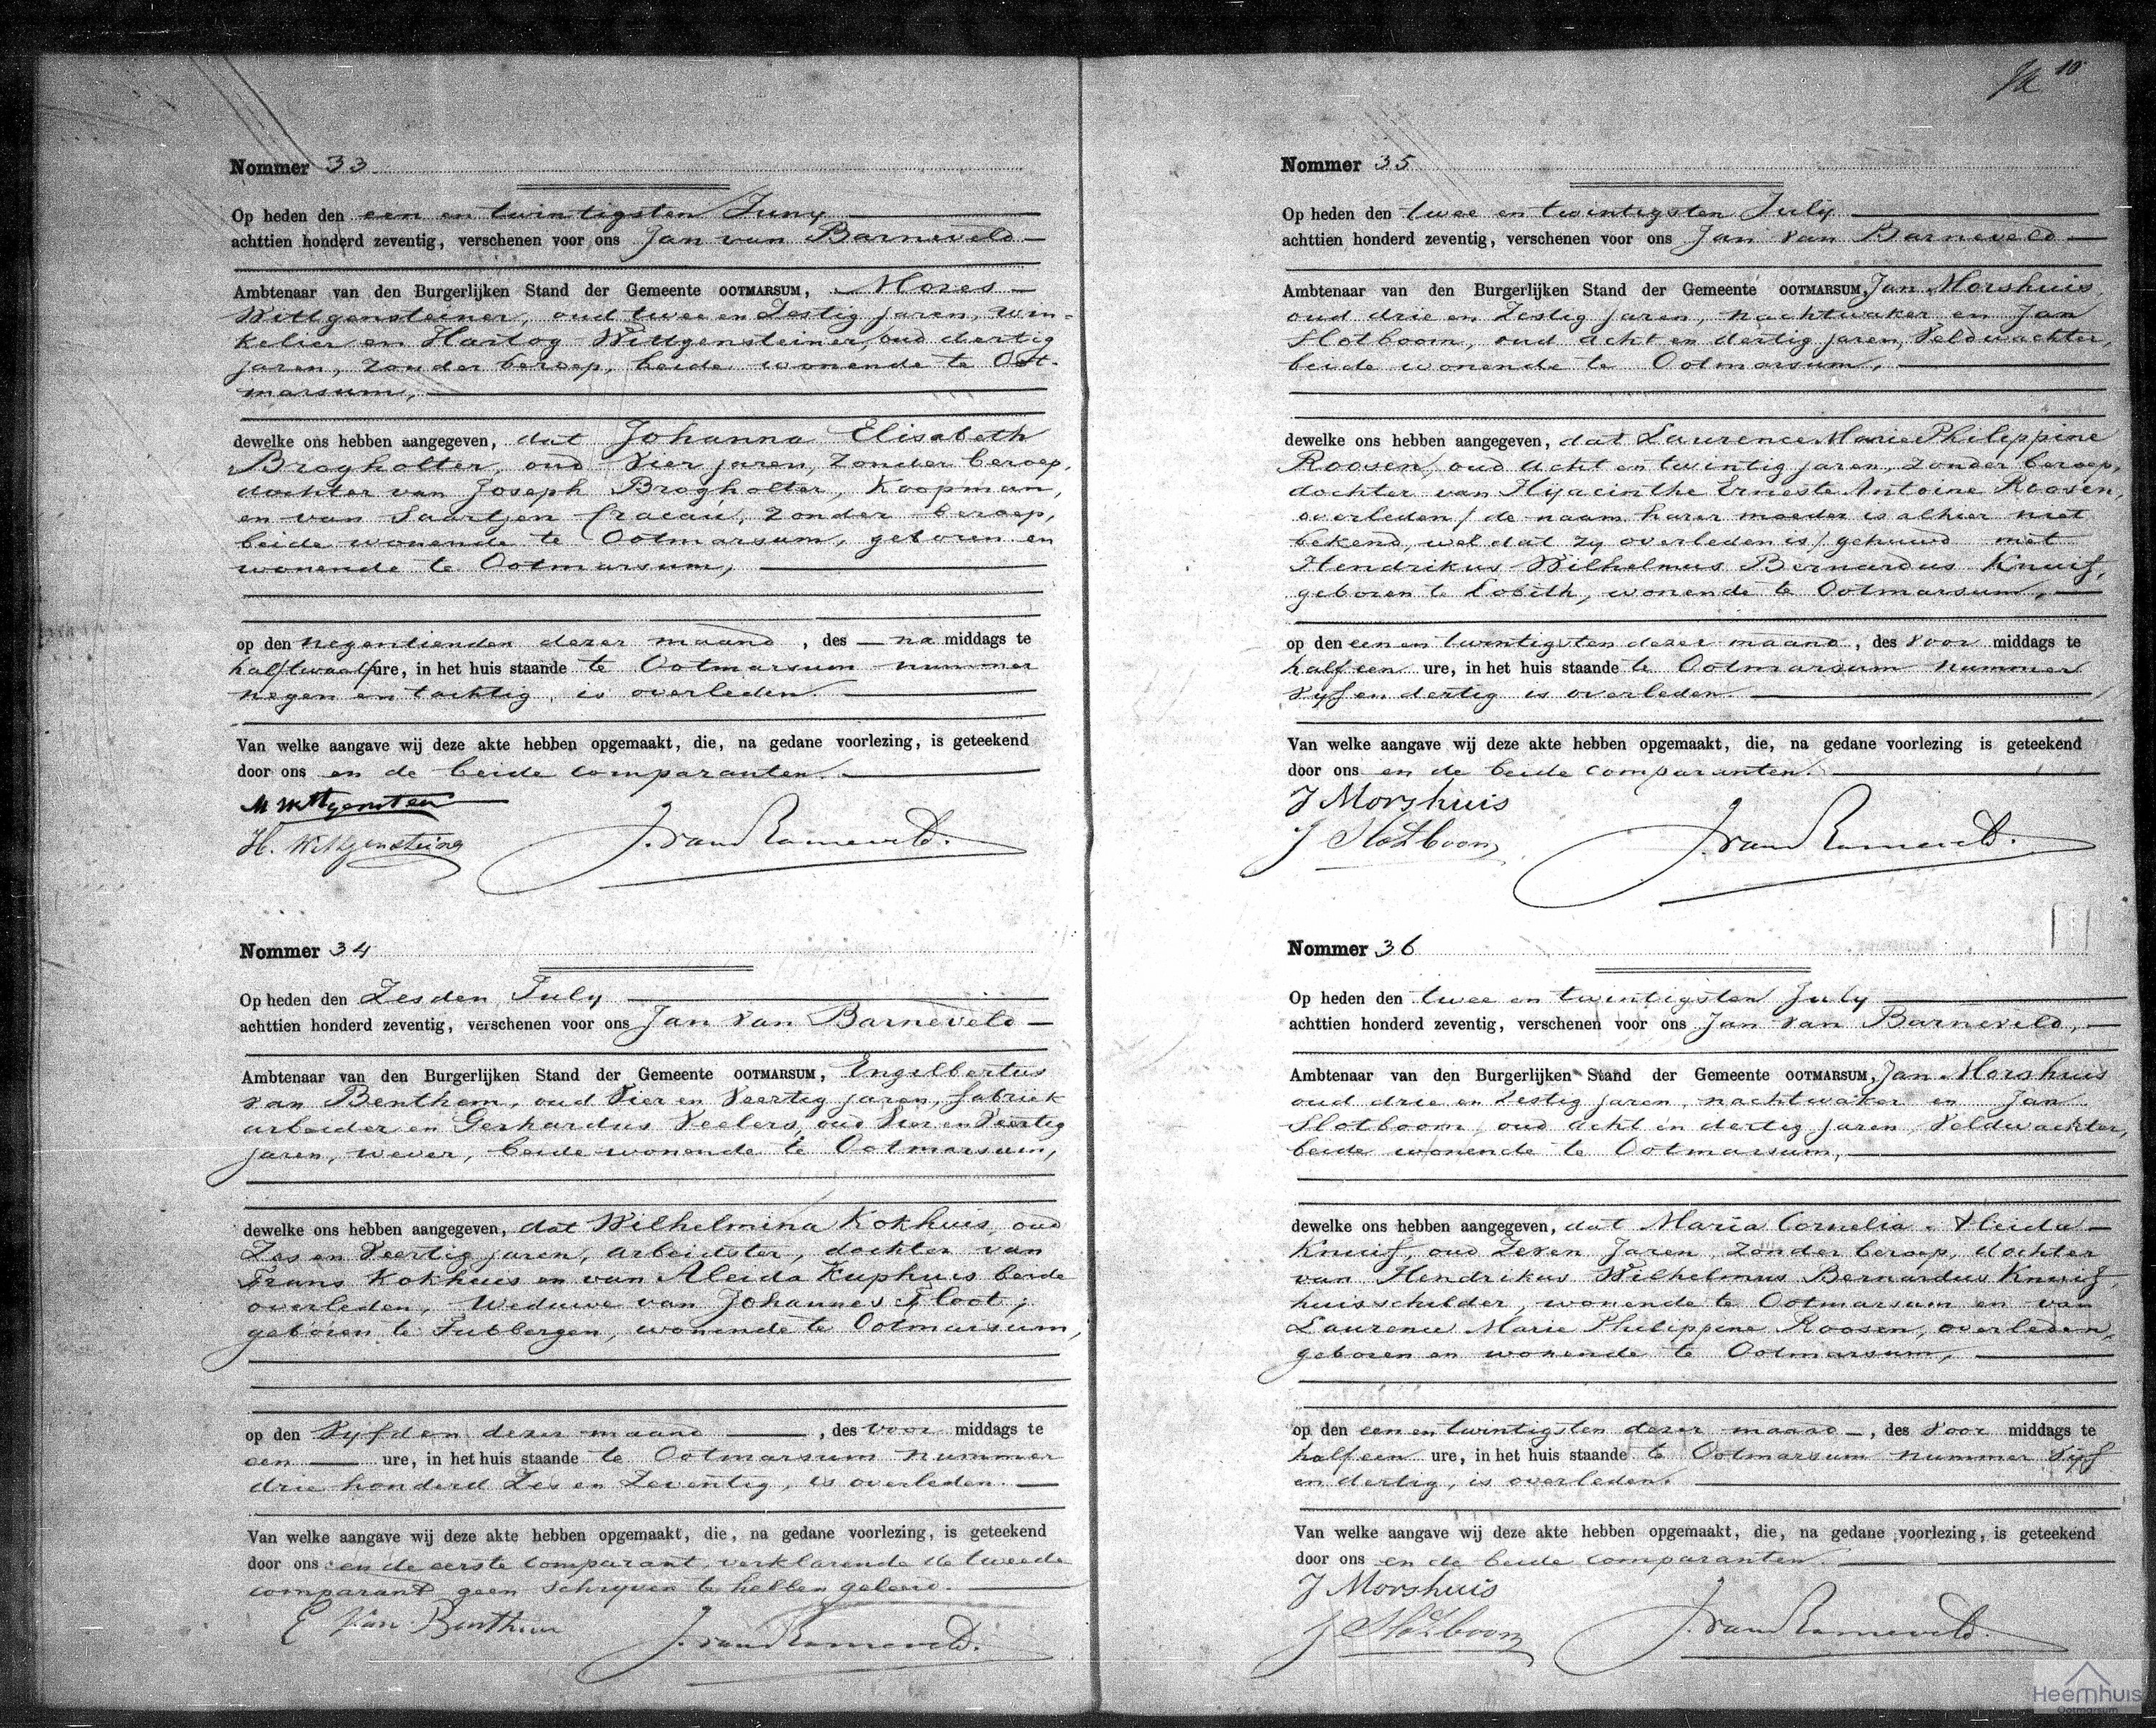 Nommer 33
Op heden den een en twintigsten Juny
achttien honderd zeventig, verschenen voor ons Jan van Barneveld
Ambtenaar van den Burgerlijken Stand der Gemeente OOTMARSUM, Mozes
Wittgensteiner, oud twee en Zestig jaren, win-
kelier en Hartog Wittgensteiner, oud dertig
jaren, zonder beroep, beide wonende te Oot-
marsum,
dewelke ons hebben aangegeven, dat Johanna Elisabeth
Brogholter, oud vier jaren, zonder beroep,
dochter van Joseph Brogholter, Koopman,
en van Saartjen Cracau, zonder beroep,
beide wonende te Ootmarsum, geboren en
wonende te Ootmarsum,
op den negentienden dezer maand, des na middags te
half twaalf ure, in het huis staande te Ootmarsum nummer
negen en tachtig, is overleden.
Van welke aangave wij deze akte hebben opgemaakt, die, na gedane voorlezing, is geteekend
door ons en de beide comparanten.
H. Wittgensteiner
J. van Barneveld.
Nommer 34
Op heden den Zesden July
achttien honderd zeventig, verschenen voor ons Jan van Barneveld
Ambtenaar van den Burgerlijken Stand der Gemeente OOTMARSUM, Engelbertus
van Benthem, oud vier en veertig jaren, fabriek
arbeider en Gerhardus Veelers, oud vier en veertig
jaren, wever, beide wonende te Ootmarsum,
dewelke ons hebben aangegeven, dat Wilhelmina Kokhuis, oud
Zes en veertig jaren, arbeidster, dochter van
Frans Kokhuis en van Aleida Kuphuis beide
overleden, Weduwe van Johannes Floot,
geboren te Tubbergen, wonende te Ootmarsum,
op den vyfden dezer maand, des voor middags te
een ure, in het huis staande te Ootmarsum nummer
drie honderd Zes en Zeventig, is overleden.
Van welke aangave wij deze akte hebben opgemaakt, die, na gedane voorlezing, is geteekend
door ons en de eerste comparant, verklarende de tweede
comparant geen schryven te hebben geleerd.
E Van Benthem
J. van Barneveld.
10
Nommer 35
Op heden den twee en twintigsten July
achttien honderd zeventig, verschenen voor ons Jan van Barneveld
Ambtenaar van den Burgerlijken Stand der Gemeente OOTMARSUM, Jan Morshuis
oud drie en Zestig jaren, nachtwaker en Jan
Slotboom, oud acht en dertig jaren, Veldwachter,
beide wonende te Ootmarsum,
dewelke ons hebben aangegeven, dat Laurence Marie Philippine
Roosen, oud acht en twintig jaren, zonder beroep,
dochter van Hyacinthe Erneste Antoine Roosen,
overleden / de naam harer moeder is alhier niet
bekend, wel dat zy overleden is / gehuwd met
Hendrikus Wilhelmus Bernardus Knuif,
geboren te Lobith, wonende te Ootmarsum,
op den een en twintigsten dezer maand, des voor middags te
half een ure, in het huis staande te Ootmarsum nummer
vyf en dertig is overleden.
Van welke aangave wij deze akte hebben opgemaakt, die, na gedane voorlezing is geteekend
door ons en de beide comparanten.
J Morshuis
J Slotboom
J. van Barneveld.
Nommer 36
Op heden den twee en twintigsten July
achttien honderd zeventig, verschenen voor ons Jan van Barneveld,
Ambtenaar van den Burgerlijken Stand der Gemeente OOTMARSUM, Jan Morshuis
oud drie en Zestig jaren, nachtwaker en Jan
Slotboom, oud acht en dertig jaren, Veldwachter,
beide wonende te Ootmarsum,
dewelke ons hebben aangegeven, dat Maria Cornelia Aleida
Knuif, oud Zeven Jaren, zonder beroep, dochter
van Hendrikus Wilhelmus Bernardus Knuif,
huisschilder, wonende te Ootmarsum en van
Laurence Marie Philippine Roosen, overleden,
geboren en wonende te Ootmarsum,
op den een en twintigsten dezer maand, des voor middags te
half een ure, in het huis staande te Ootmarsum nummer vyf
en dertig, is overleden.
Van welke aangave wij deze akte hebben opgemaakt, die, na gedane voorlezing, is geteekend
door ons en de beide comparanten.
J Morshuis
J Slotboom
J. van Barneveld.
Heemhuis
Ootmarsum